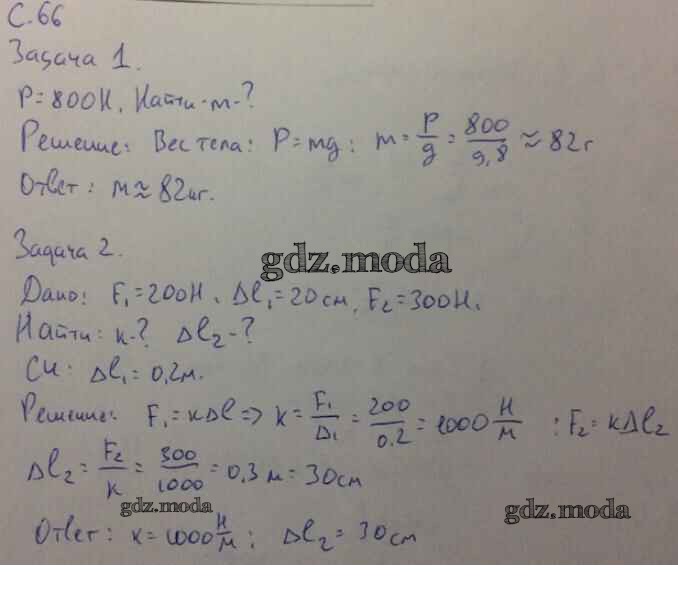 С.66
Задача 1.
P=800Н. Найти-m-?
Решение: Вес тела: P=mg: m=P/g=800/9,8≈82г
Ответ: m≈82кг.
Задача 2.
gdz.moda
Дано: F₁=200Н. Δl₁=20см, F₂=300Н.
Найти: к-? Δl₂-?
Си: Δl₁=0,2м.
Решение: F₁=кΔl=>к=F₁/Δ₁=200/0.2=1000 Н/м :F₂=кΔl₂
Δl₂=F₂/к=300/1000=0,3м=30см
gdz.moda
gdz.moda
Ответ: к=1000 Н/м; Δl₂=30см